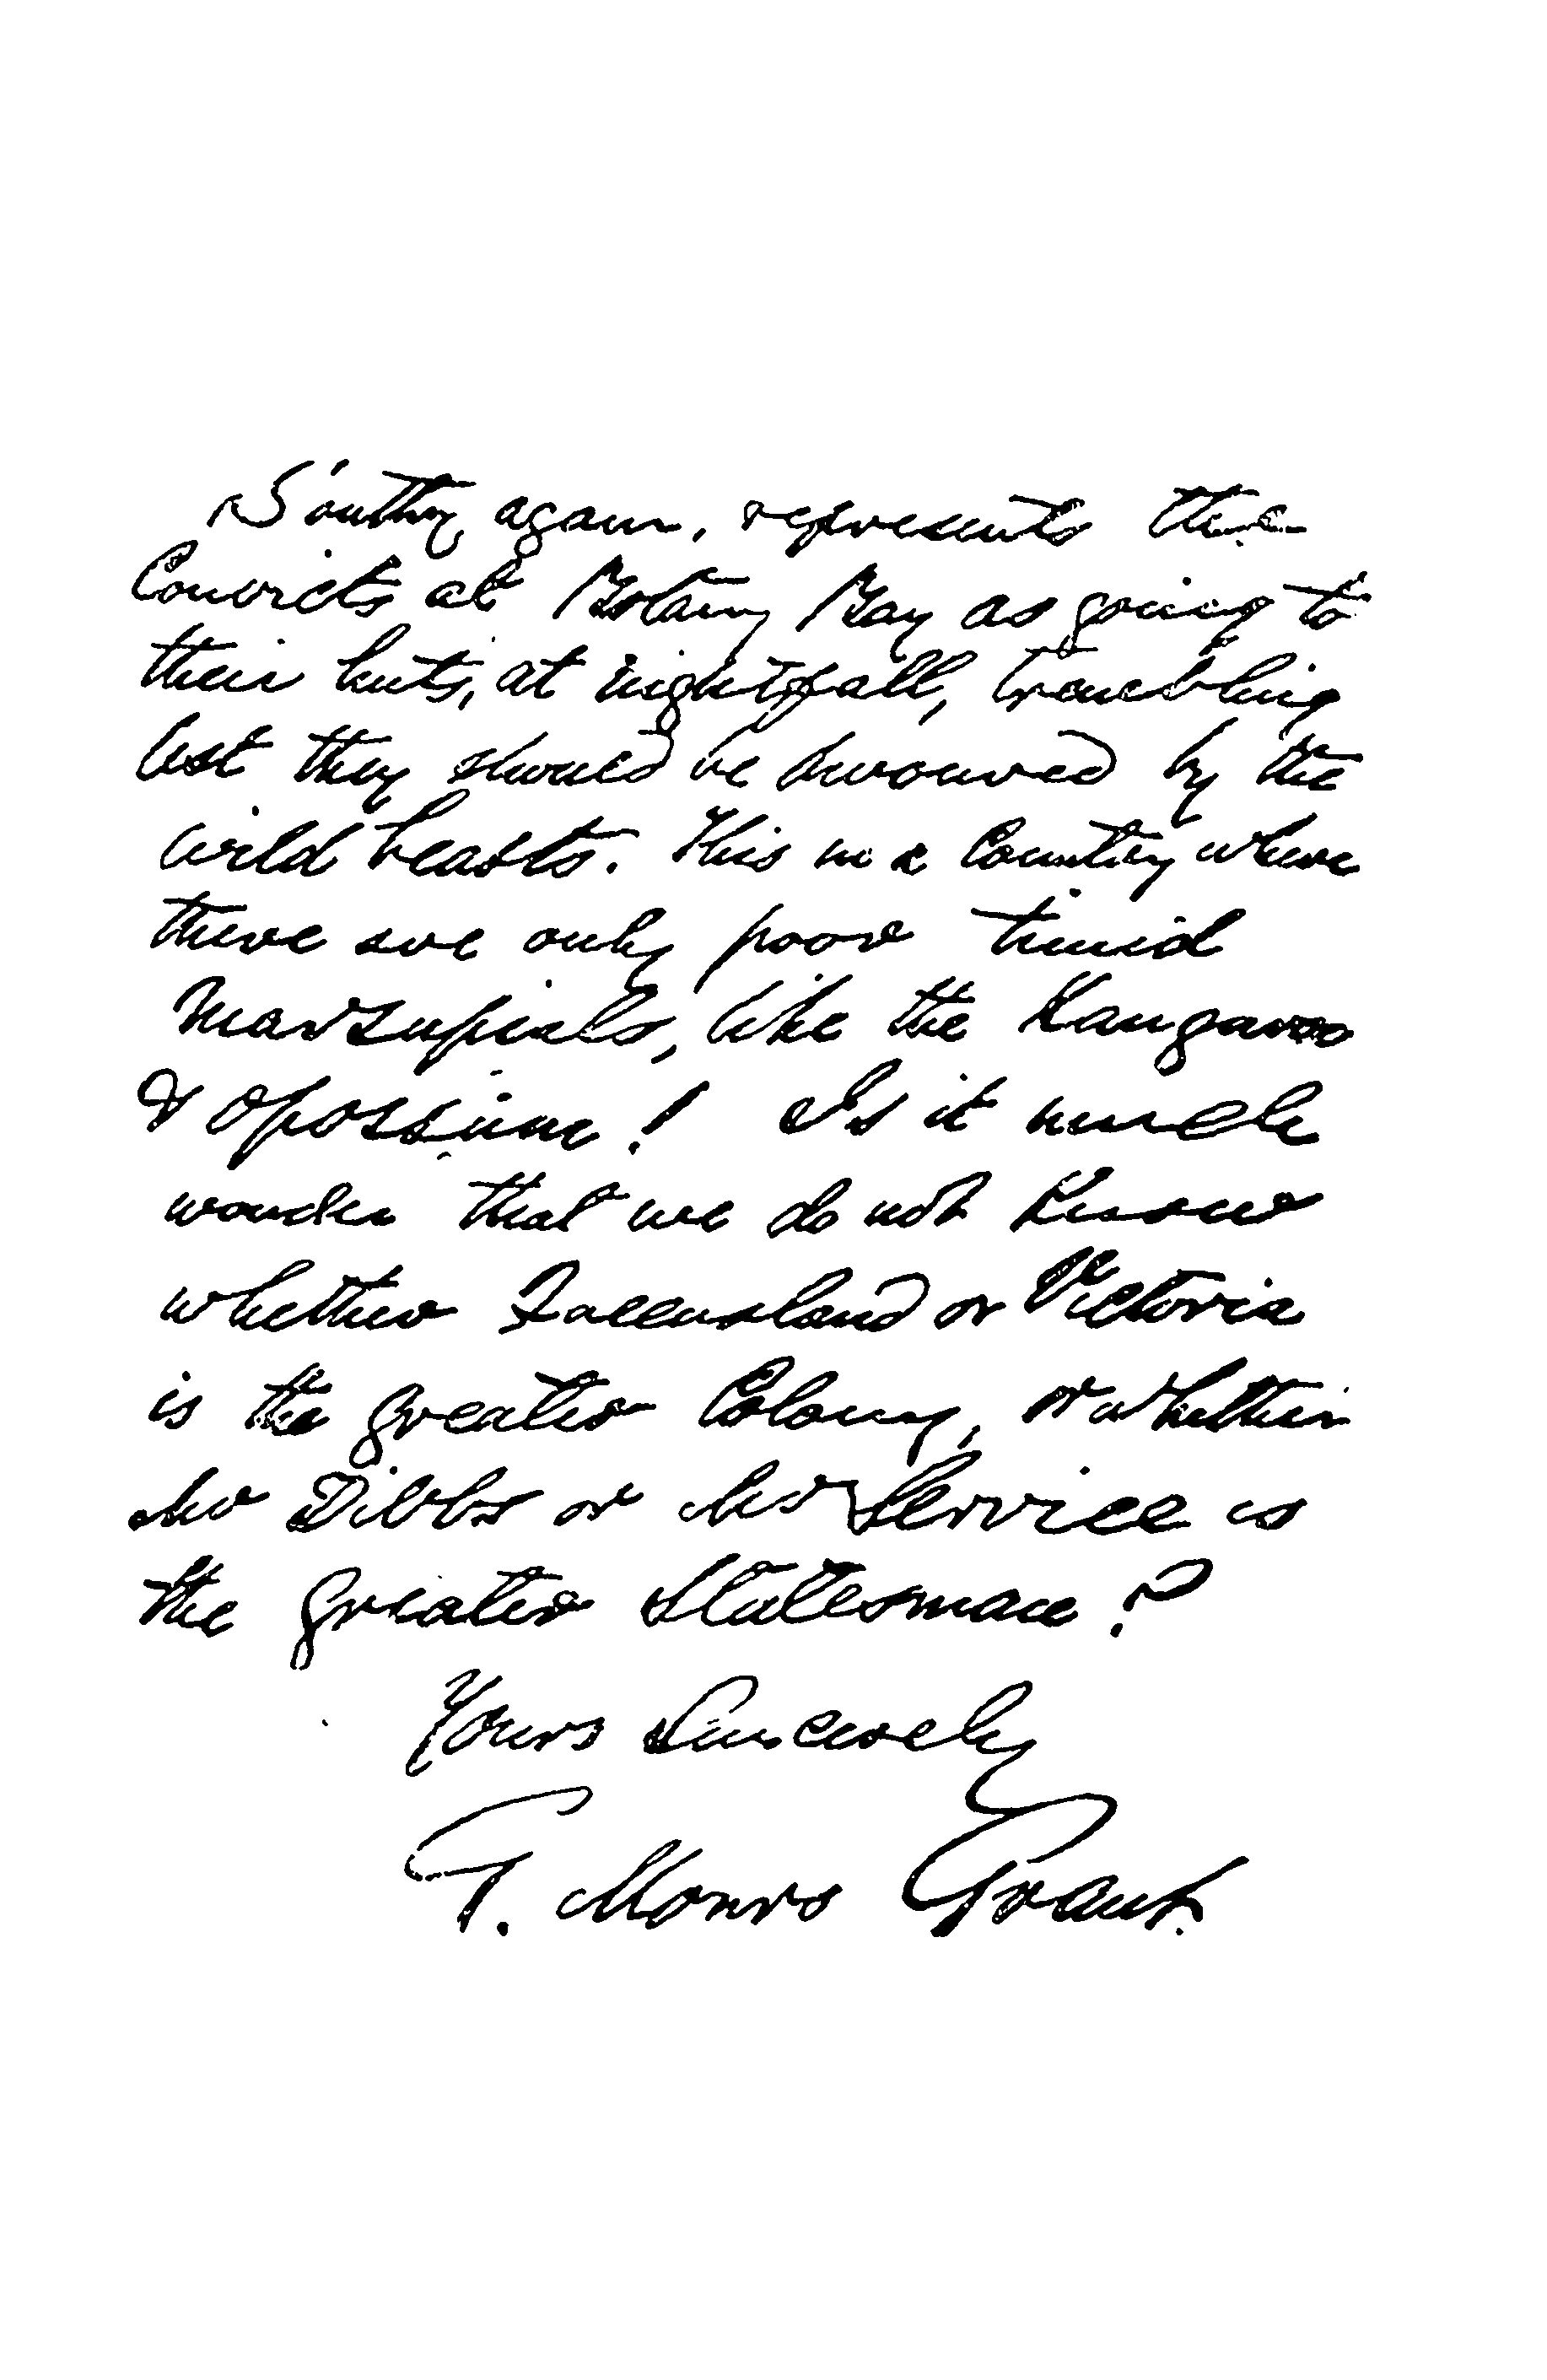 Southey again, represents the
Convicts at Botany Bay as going to
their huts, at nightfall, trembling
lest they should be devoured by the
wild beasts. This in a Country where
there are only poor timid
Marsupials, like the Kangaroo
& Opossum! Is it much
wonder that we do not know
whether Queensland or Victoria
is the greater Colony, or whether
Mr Dibbs or Mr Service is
the greater Statesman?
Yours Sincerely
G. Monro Grant.